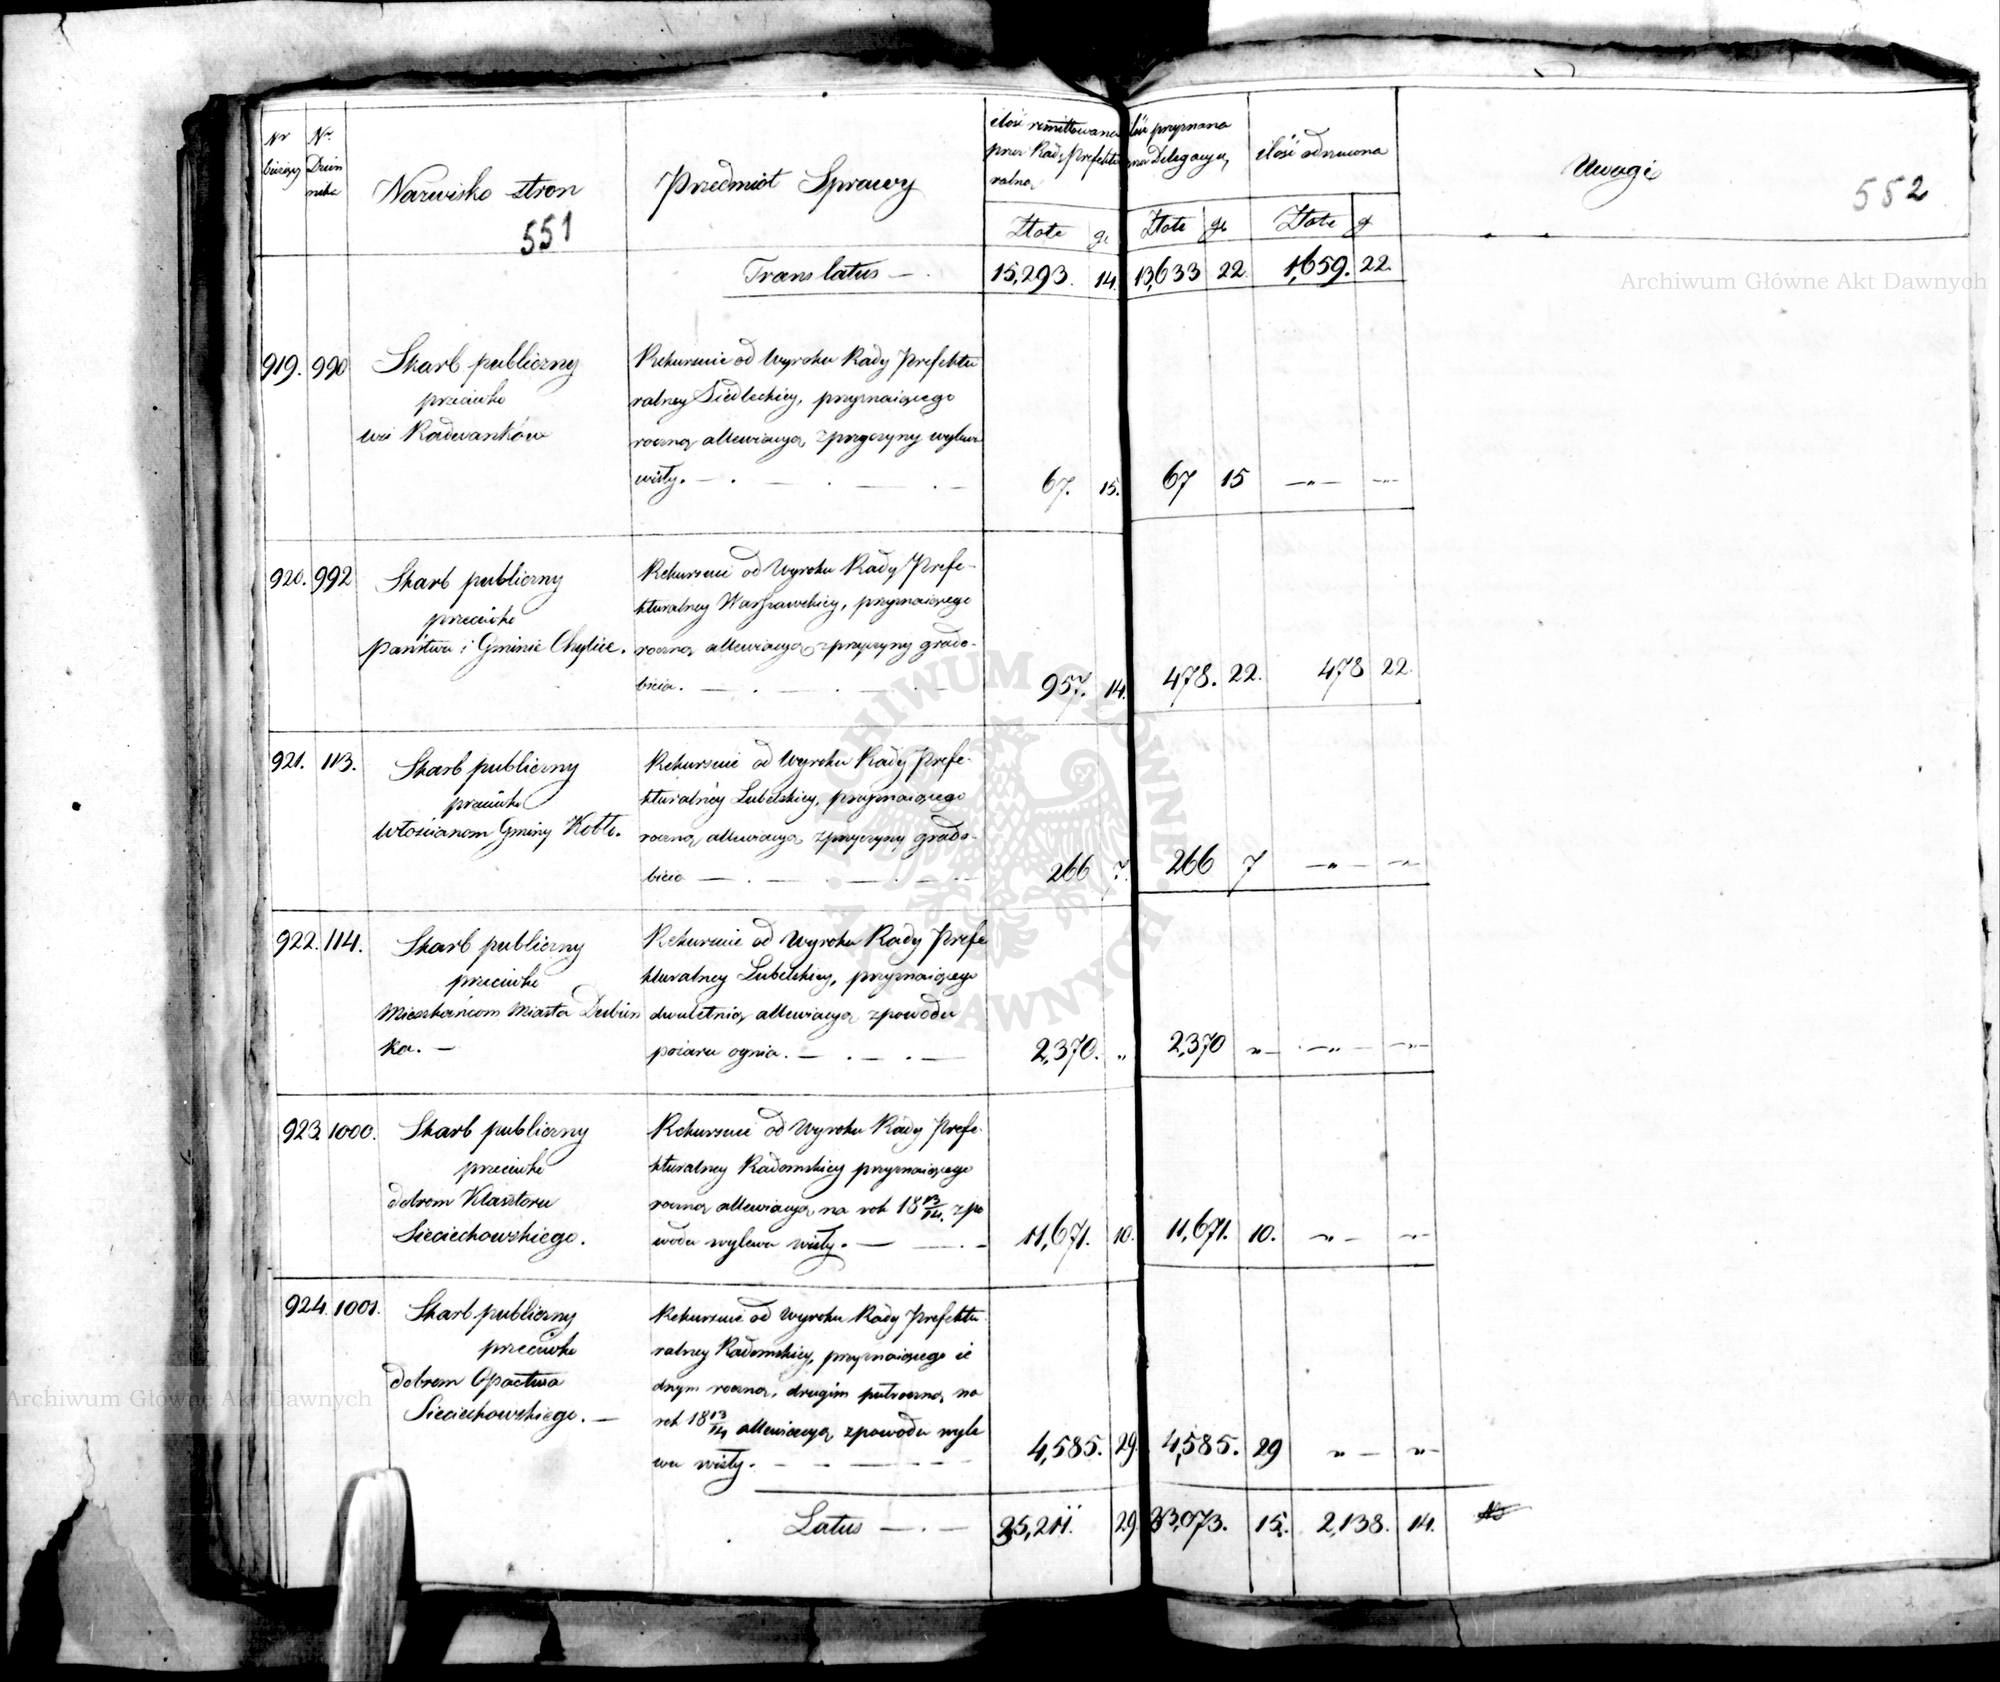 Nr bieżący
Nr. Dzien nika
Nazwisko stron
551
Przedmiot Sprawy
ilość remittowana przez Radę Prefektu ralną
ilość przyznana przez Delegacyą
ilość odrzucona
Uwagi
552
Złote gr Złote gr Złote gr
Translatus — . 15,293. 14. 13,633 22. 1,659. 22.
919. 990 Skarb publiczny
przeciwko
wsi Radwanków
Rekursuie od Wyroku Rady Prefektu
ralney Siedleckiey, przyznaiącego
roczną allewiacyą z przyczyny wylewu
wisły. — . — . — . —
67. 15. 67 15 —„— —„—
920. 992 Skarb publiczny
przeciwko
państwu i Gminie Chylice.
Rekursuie od Wyroku Rady Prefe-
kturalney Warszawskiey, przyznaiącego
roczną allewiacyą z przyczyny grado-
bicia. — . — . — . —
957. 14. 478. 22. 478 22.
921. 113. Skarb publiczny
przeciwko
Włościanom Gminy Kotlo.
Rekursuie od Wyroku Rady Prefe-
kturalnéy Lubelskiey, przyznaiącego
roczną allewiacyą z przyczyny grado-
bicia — . — . — . —
266 7. 266 7 —„— —„—
922. 114. Skarb publiczny
przeciwko
Mieszkańcom Miasta Dubien
ka. —
Rekursuie od Wyroku Rady Prefe
kturalney Lubelskiey, przyznaiącego
dwuletnią allewiacyą z powodu
pożaru ognia. — . — . —
2,370. „ 2,370 „— —„— —„—
923. 1000. Skarb publiczny
przeciwko
dobrom Klasztoru
Sieciechowskiego.
Rekursuie od Wyroku Rady Prefe-
kturalney Radomskiey przyznaiącego
roczną allewiacyą na rok 18 13/14. z po
wodu wylewu wisły. — — . —
11,671. 10. 11,671. 10. „— „—
924. 1001. Skarb publiczny
przeciwko
dobrom Opactwa
Sieciechowskiego. —
Rekursuie od Wyroku Rady Prefektu
ralney Radomskiey, przyznaiącego ie
dnym roczną, drugim pułroczną, na
rok 18 13/14 allewiacyą z powodu wyle
wu wisły. — — — — —
4,585. 29. 4,585. 29 „— „—
Latus — . — 35,211. 29. 33,073. 15. 2,138. 14.
Archiwum Główne Akt Dawnych
Archiwum Główne Akt Dawnych
ARCHIWUM GŁÓWNE AKT DAWNYCH